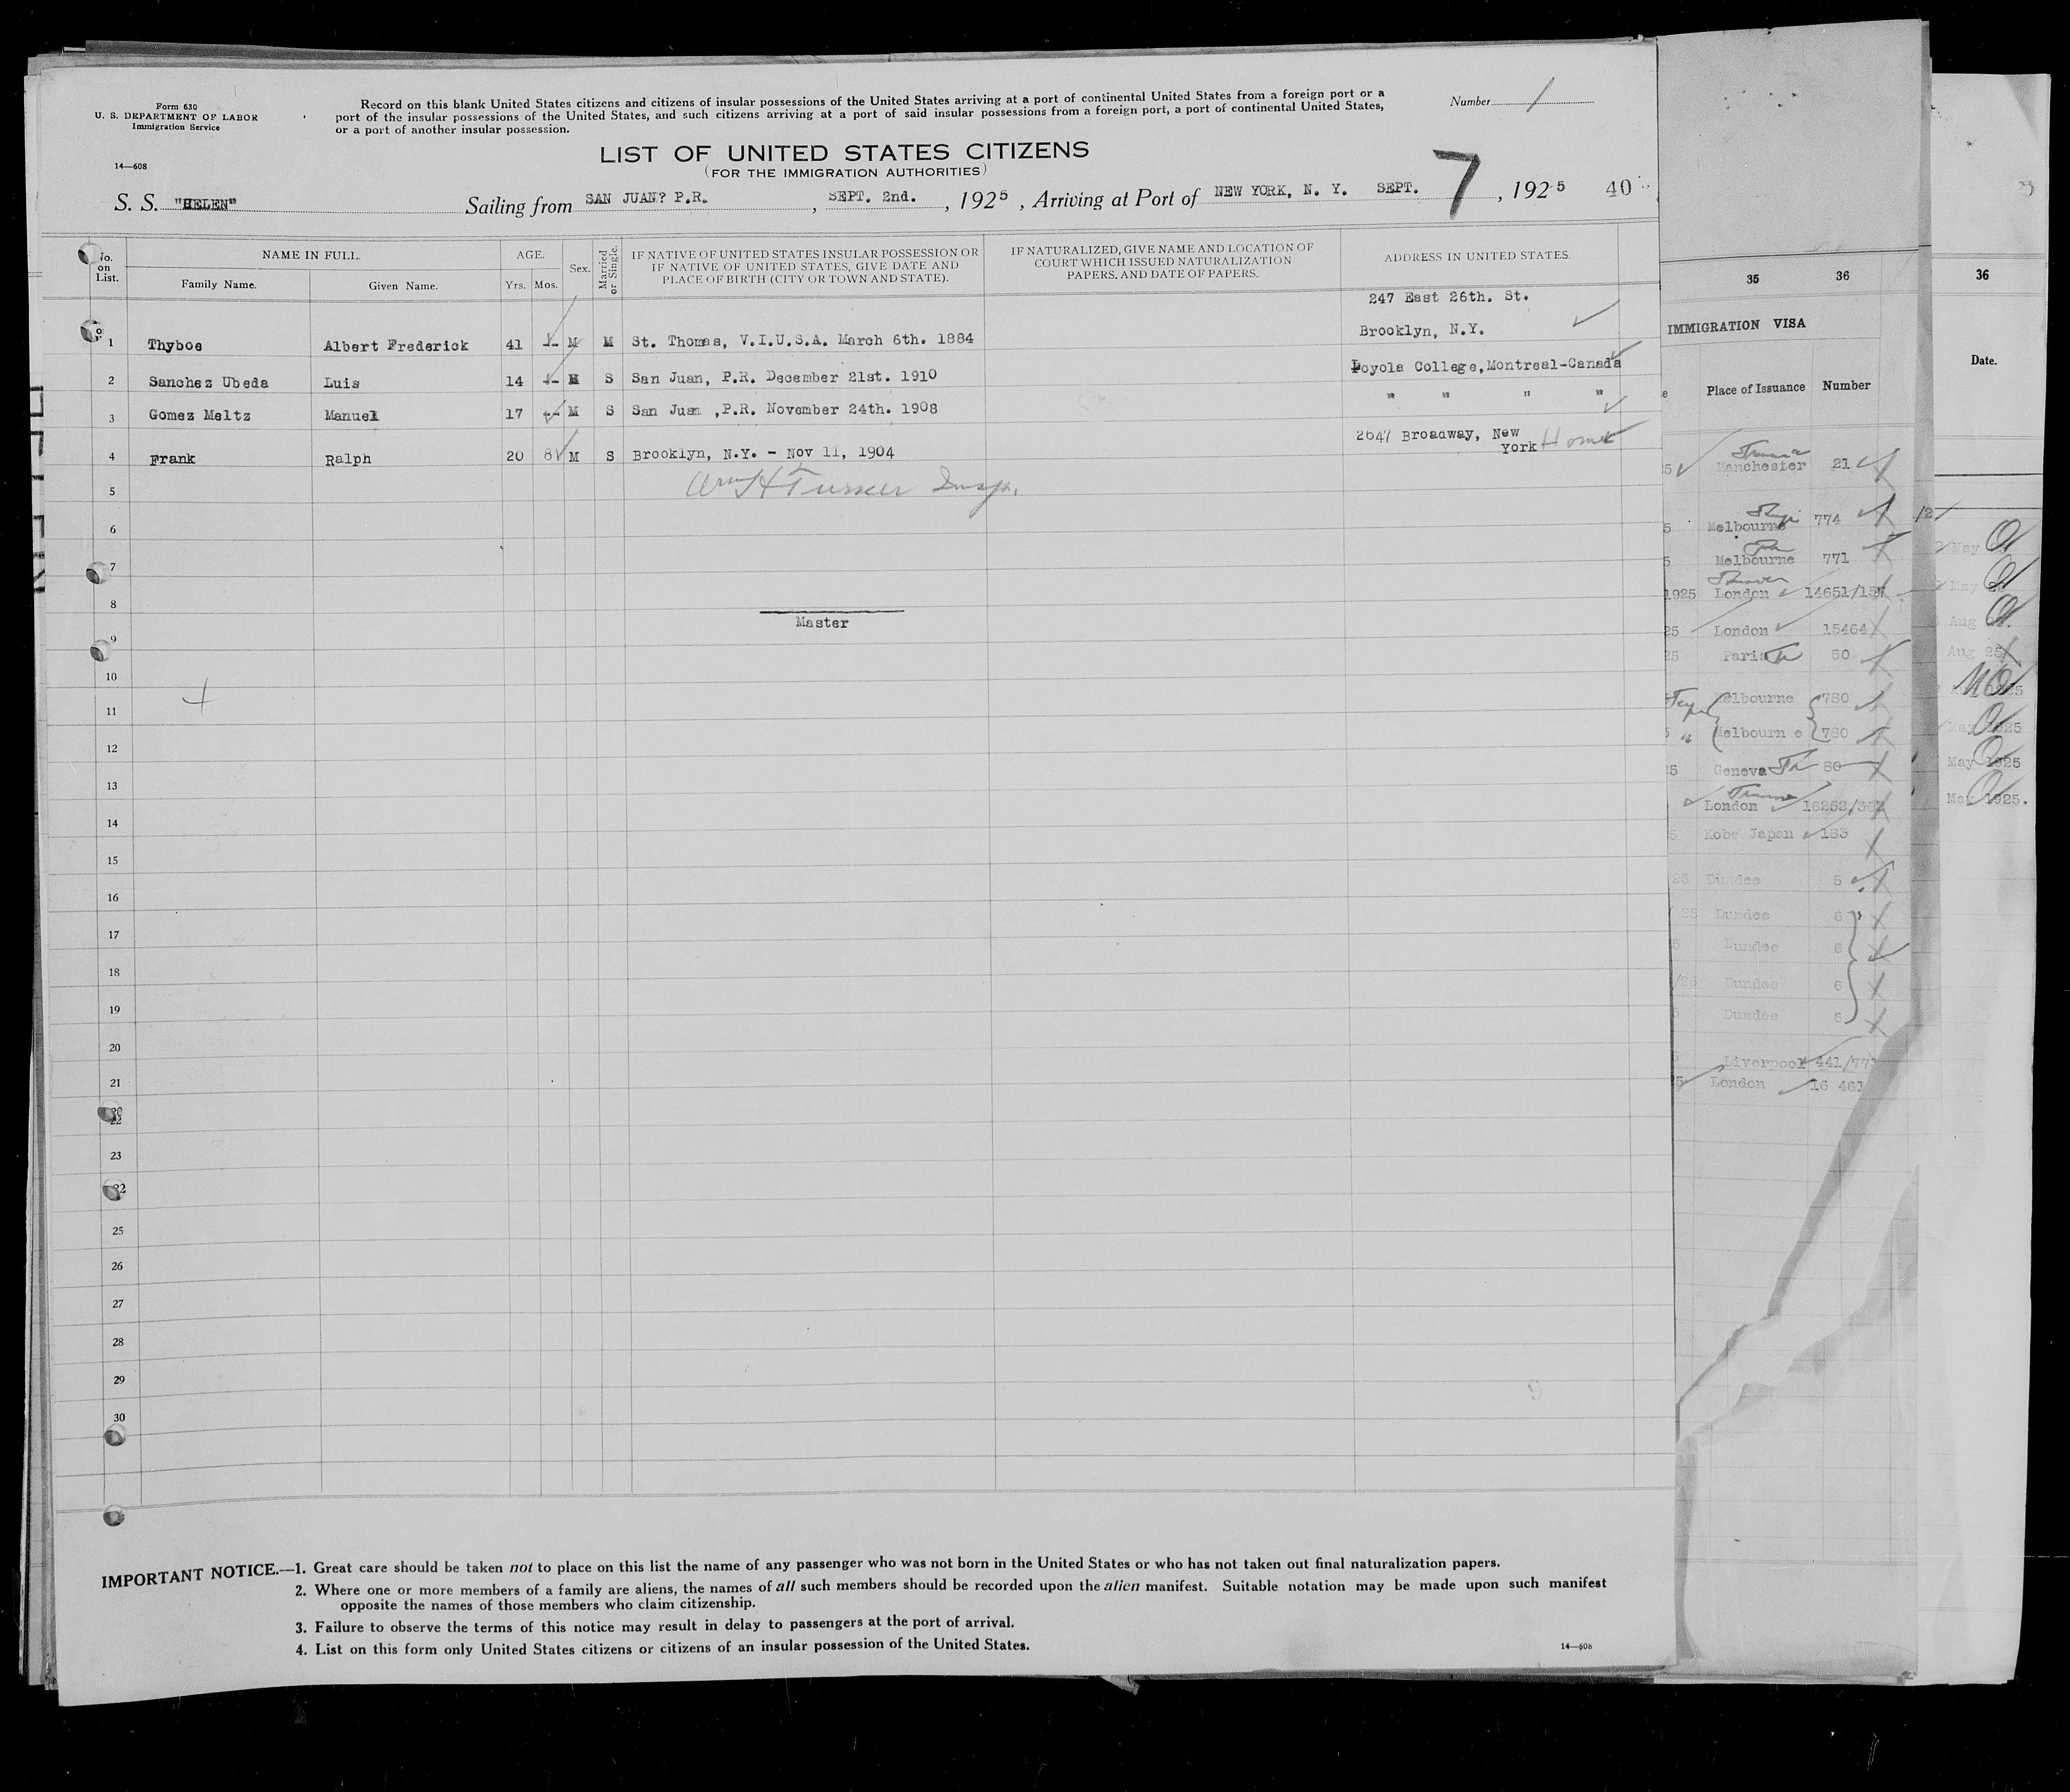 Form 630
U. S. DEPARTMENT OF LABOR
Immigration Service
14—608
Record on this blank United States citizens and citizens of insular possessions of the United States arriving at a port of continental United States from a foreign port or a
port of the insular possessions of the United States, and such citizens arriving at a port of said insular possessions from a foreign port, a port of continental United States,
or a port of another insular possession.
Number 1
LIST OF UNITED STATES CITIZENS
(FOR THE IMMIGRATION AUTHORITIES)
S. S. "HELEN" Sailing from SAN JUAN? P.R. , SEPT. 2nd. , 1925 , Arriving at Port of NEW YORK, N. Y. SEPT. 7 , 1925 40
No. on List. NAME IN FULL. AGE. Sex. Married or Single. IF NATIVE OF UNITED STATES INSULAR POSSESSION OR IF NATIVE OF UNITED STATES, GIVE DATE AND PLACE OF BIRTH (CITY OR TOWN AND STATE). IF NATURALIZED, GIVE NAME AND LOCATION OF COURT WHICH ISSUED NATURALIZATION PAPERS, AND DATE OF PAPERS. ADDRESS IN UNITED STATES.
Family Name. Given Name. Yrs. Mos.
247 East 26th. St.
1 Thyboe Albert Frederick 41 M M St. Thomas, V.I.U.S.A. March 6th. 1884 Brooklyn, N.Y.
2 Sanchez Ubeda Luis 14 M S San Juan, P.R. December 21st. 1910 Loyola College, Montreal-Canada
3 Gomez Meltz Manuel 17 M S San Juan ,P.R. November 24th. 1908 " " " "
4 Frank Ralph 20 8 M S Brooklyn, N.Y. - Nov 11, 1904 2647 Broadway, New York Home
5 Wm H Turner Insp.
6
7
8
Master
9
10
11
12
13
14
15
16
17
18
19
20
21
22
23
25
26
27
28
29
30
IMPORTANT NOTICE.—1. Great care should be taken not to place on this list the name of any passenger who was not born in the United States or who has not taken out final naturalization papers.
2. Where one or more members of a family are aliens, the names of all such members should be recorded upon the alien manifest. Suitable notation may be made upon such manifest
opposite the names of those members who claim citizenship.
3. Failure to observe the terms of this notice may result in delay to passengers at the port of arrival.
4. List on this form only United States citizens or citizens of an insular possession of the United States.
14—608
35 36
IMMIGRATION VISA
Place of Issuance Number
Manchester 21
Melbourne 774
Melbourne 771
1925 London 14651/
25 London 15464
25 Paris 50
Melbourne 780
Melbourn e 780
Geneva 80
London 16262/
Kobe Japan 183
Dundee 5
Dundee 6
Dundee 6
Dundee 6
Dundee 6
Liverpool 441/77
London 16 461
36
Date.
May
May
Aug
Aug 25
May 1925
May 1925
May 1925.